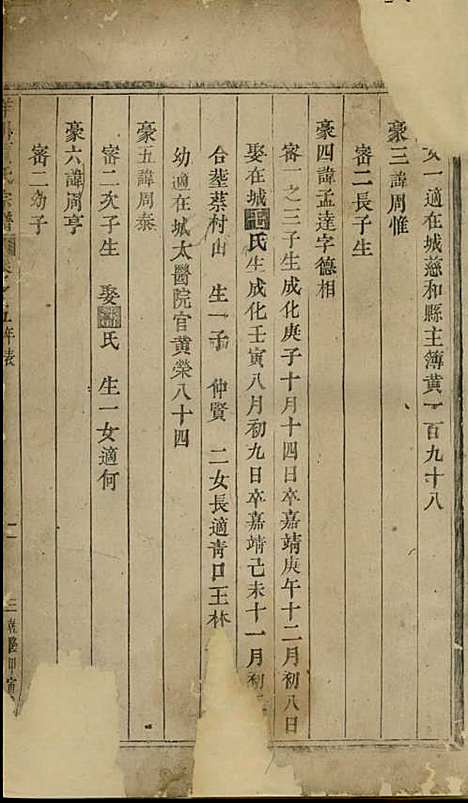 女一適在城慈和縣主簿黃一百九十八
豪三諱周惟
審二長子生
豪四諱孟達字德相
審一之三子生成化庚子十月十四日卒嘉靖庚午十二月初八日
娶在城氏生成化壬寅八月初九日卒嘉靖己未十一月初
合塟蔡村山 生一子 仲賢 二女長適靑口王林
幼適在城太醫院官黃榮八十四
豪五諱周泰
審二次子生 娶氏 生一女適何
豪六諱周亨
審二幼子
氏宗譜 年表 二